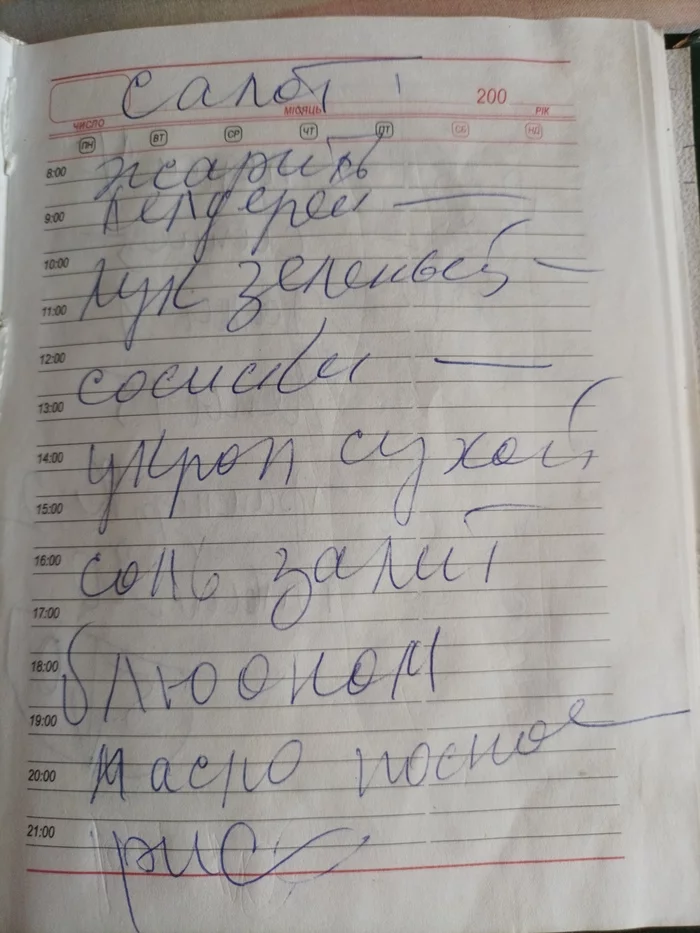 Салат
200
ЧИСЛО МІСЯЦЬ РІК
ПН ВТ СР ЧТ ПТ СБ НД
8:00 жарить
9:00
10:00 лук зеленый —
11:00
12:00 сосиски —
13:00
14:00 укроп сухой
15:00
16:00 соль залит
17:00
18:00 блюоном
19:00
20:00 масло посное
21:00 рис